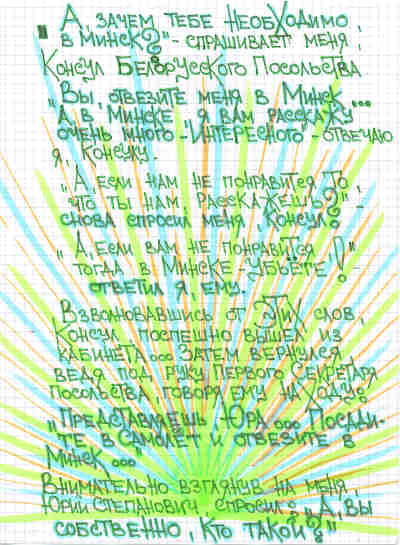 А, зачем тебе необходимо
в Минск?" - спрашивает меня,
Консул Белорусского Посольства
"Вы, отвезите меня в Минск ...
А в Минске я вам расскажу
очень много - "Интересного" - отвечаю
я, Консулу.
"А, если нам не понравится то,
что ты нам расскажешь?" -
снова спросил меня, Консул.
"А, если вам не понравится,
тогда в Минске - убьёте!"
ответил я ему.
Взволновавшись от этих слов,
Консул поспешно вышел из
кабинета ... Затем вернулся
ведя под руку Первого Секретаря
Посольства, говоря ему на ходу:
"Представляешь Юра ... Посади-
те в самолёт и отвезите в
Минск ..."
Внимательно взглянув на меня,
Юрий Степанович, спросил: "А, вы
собственно, кто такой?"